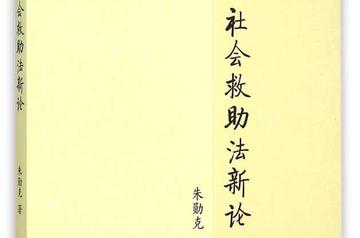 社会救助法新论
朱勋克
会救助法新论
朱勋克 著